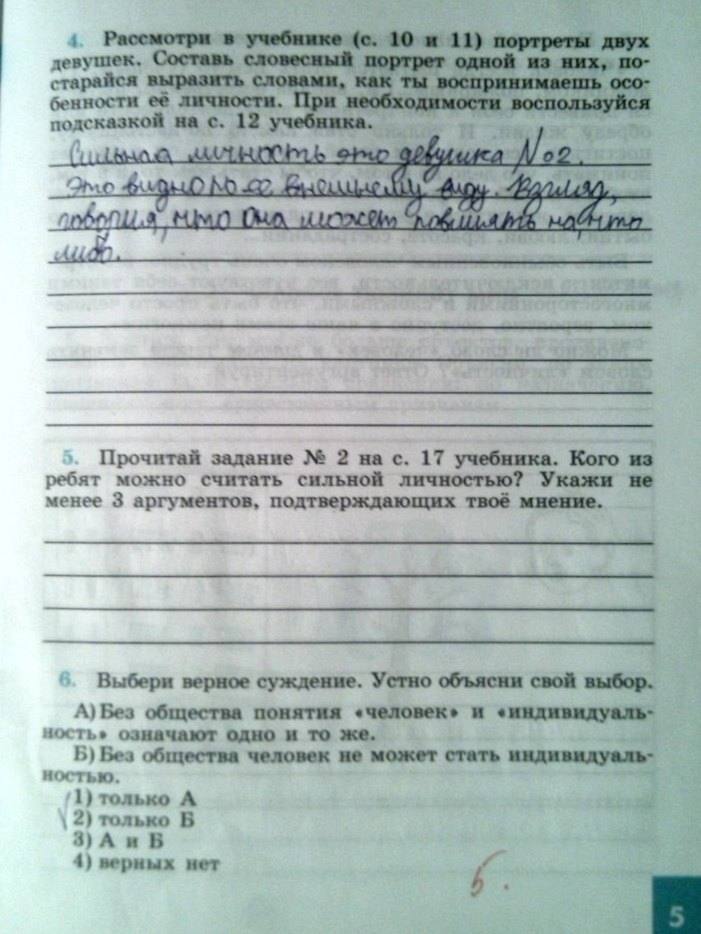 4. Рассмотри в учебнике (с. 10 и 11) портреты двух
девушек. Составь словесный портрет одной из них, по-
старайся выразить словами, как ты воспринимаешь осо-
бенности её личности. При необходимости воспользуйся
подсказкой на с. 12 учебника.
Сильная личность это девушка №2.
Это видно по ее внешнему виду. Взгляд,
говорил, что она может повлиять на что
либо.
5. Прочитай задание № 2 на с. 17 учебника. Кого из
ребят можно считать сильной личностью? Укажи не
менее 3 аргументов, подтверждающих твоё мнение.
6. Выбери верное суждение. Устно объясни свой выбор.
А) Без общества понятия «человек» и «индивидуаль-
ность» означают одно и то же.
Б) Без общества человек не может стать индивидуаль-
ностью.
1) только А
2) только Б
3) А и Б
4) верных нет
5.
5